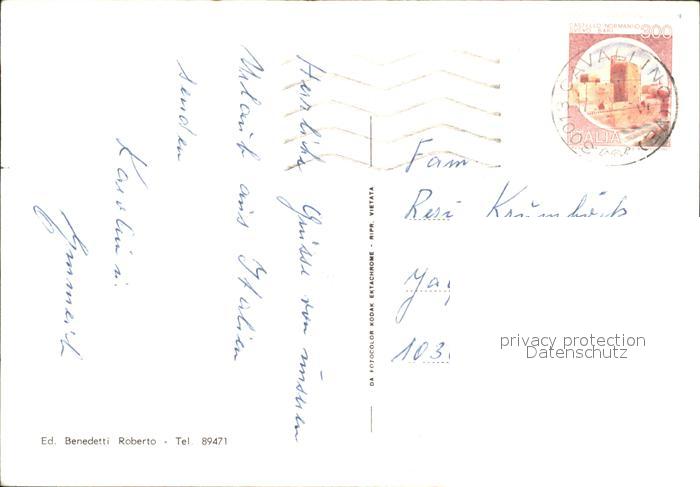 Herzliche Grüsse von unserem
Urlaub aus Italien
senden
Karolin u.
Fam
Resi
103
DA FOTOCOLOR KODAK EKTACHROME - RIPR. VIETATA
Ed. Benedetti Roberto - Tel. 89471
CASTELLO NORMANNO
SVEVO BARI
300
ITALIA
30013 CAVALLINO
privacy protection
Datenschutz